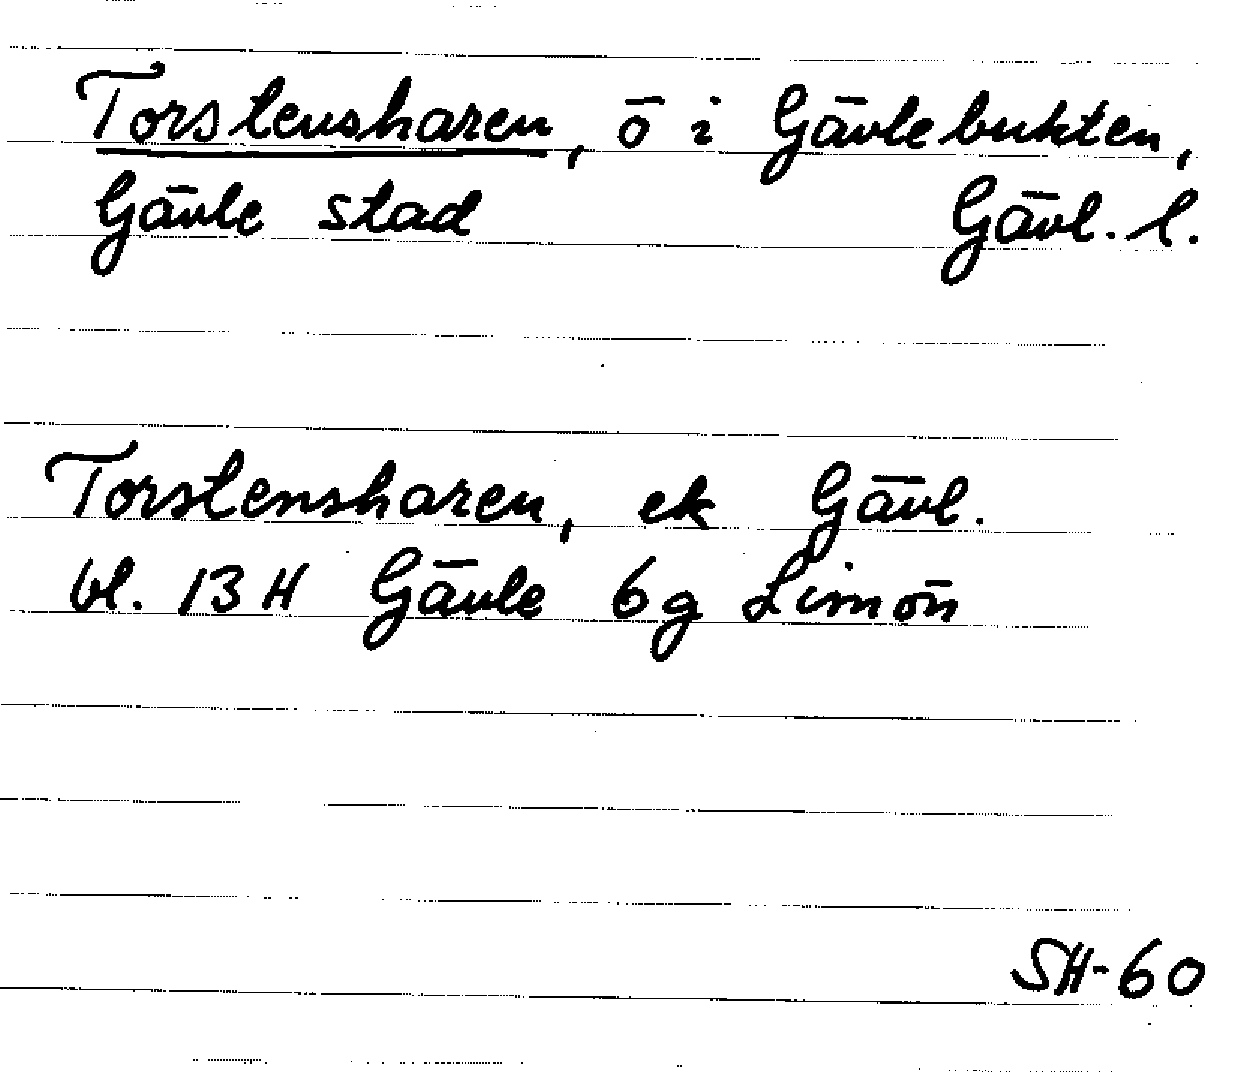 Torstensharen, ö i Gävlebukten,
Gävle stad Gävl. l.
Torstensharen, ek Gävl.
bl. 13 H Gävle 6g Limön
SH-60